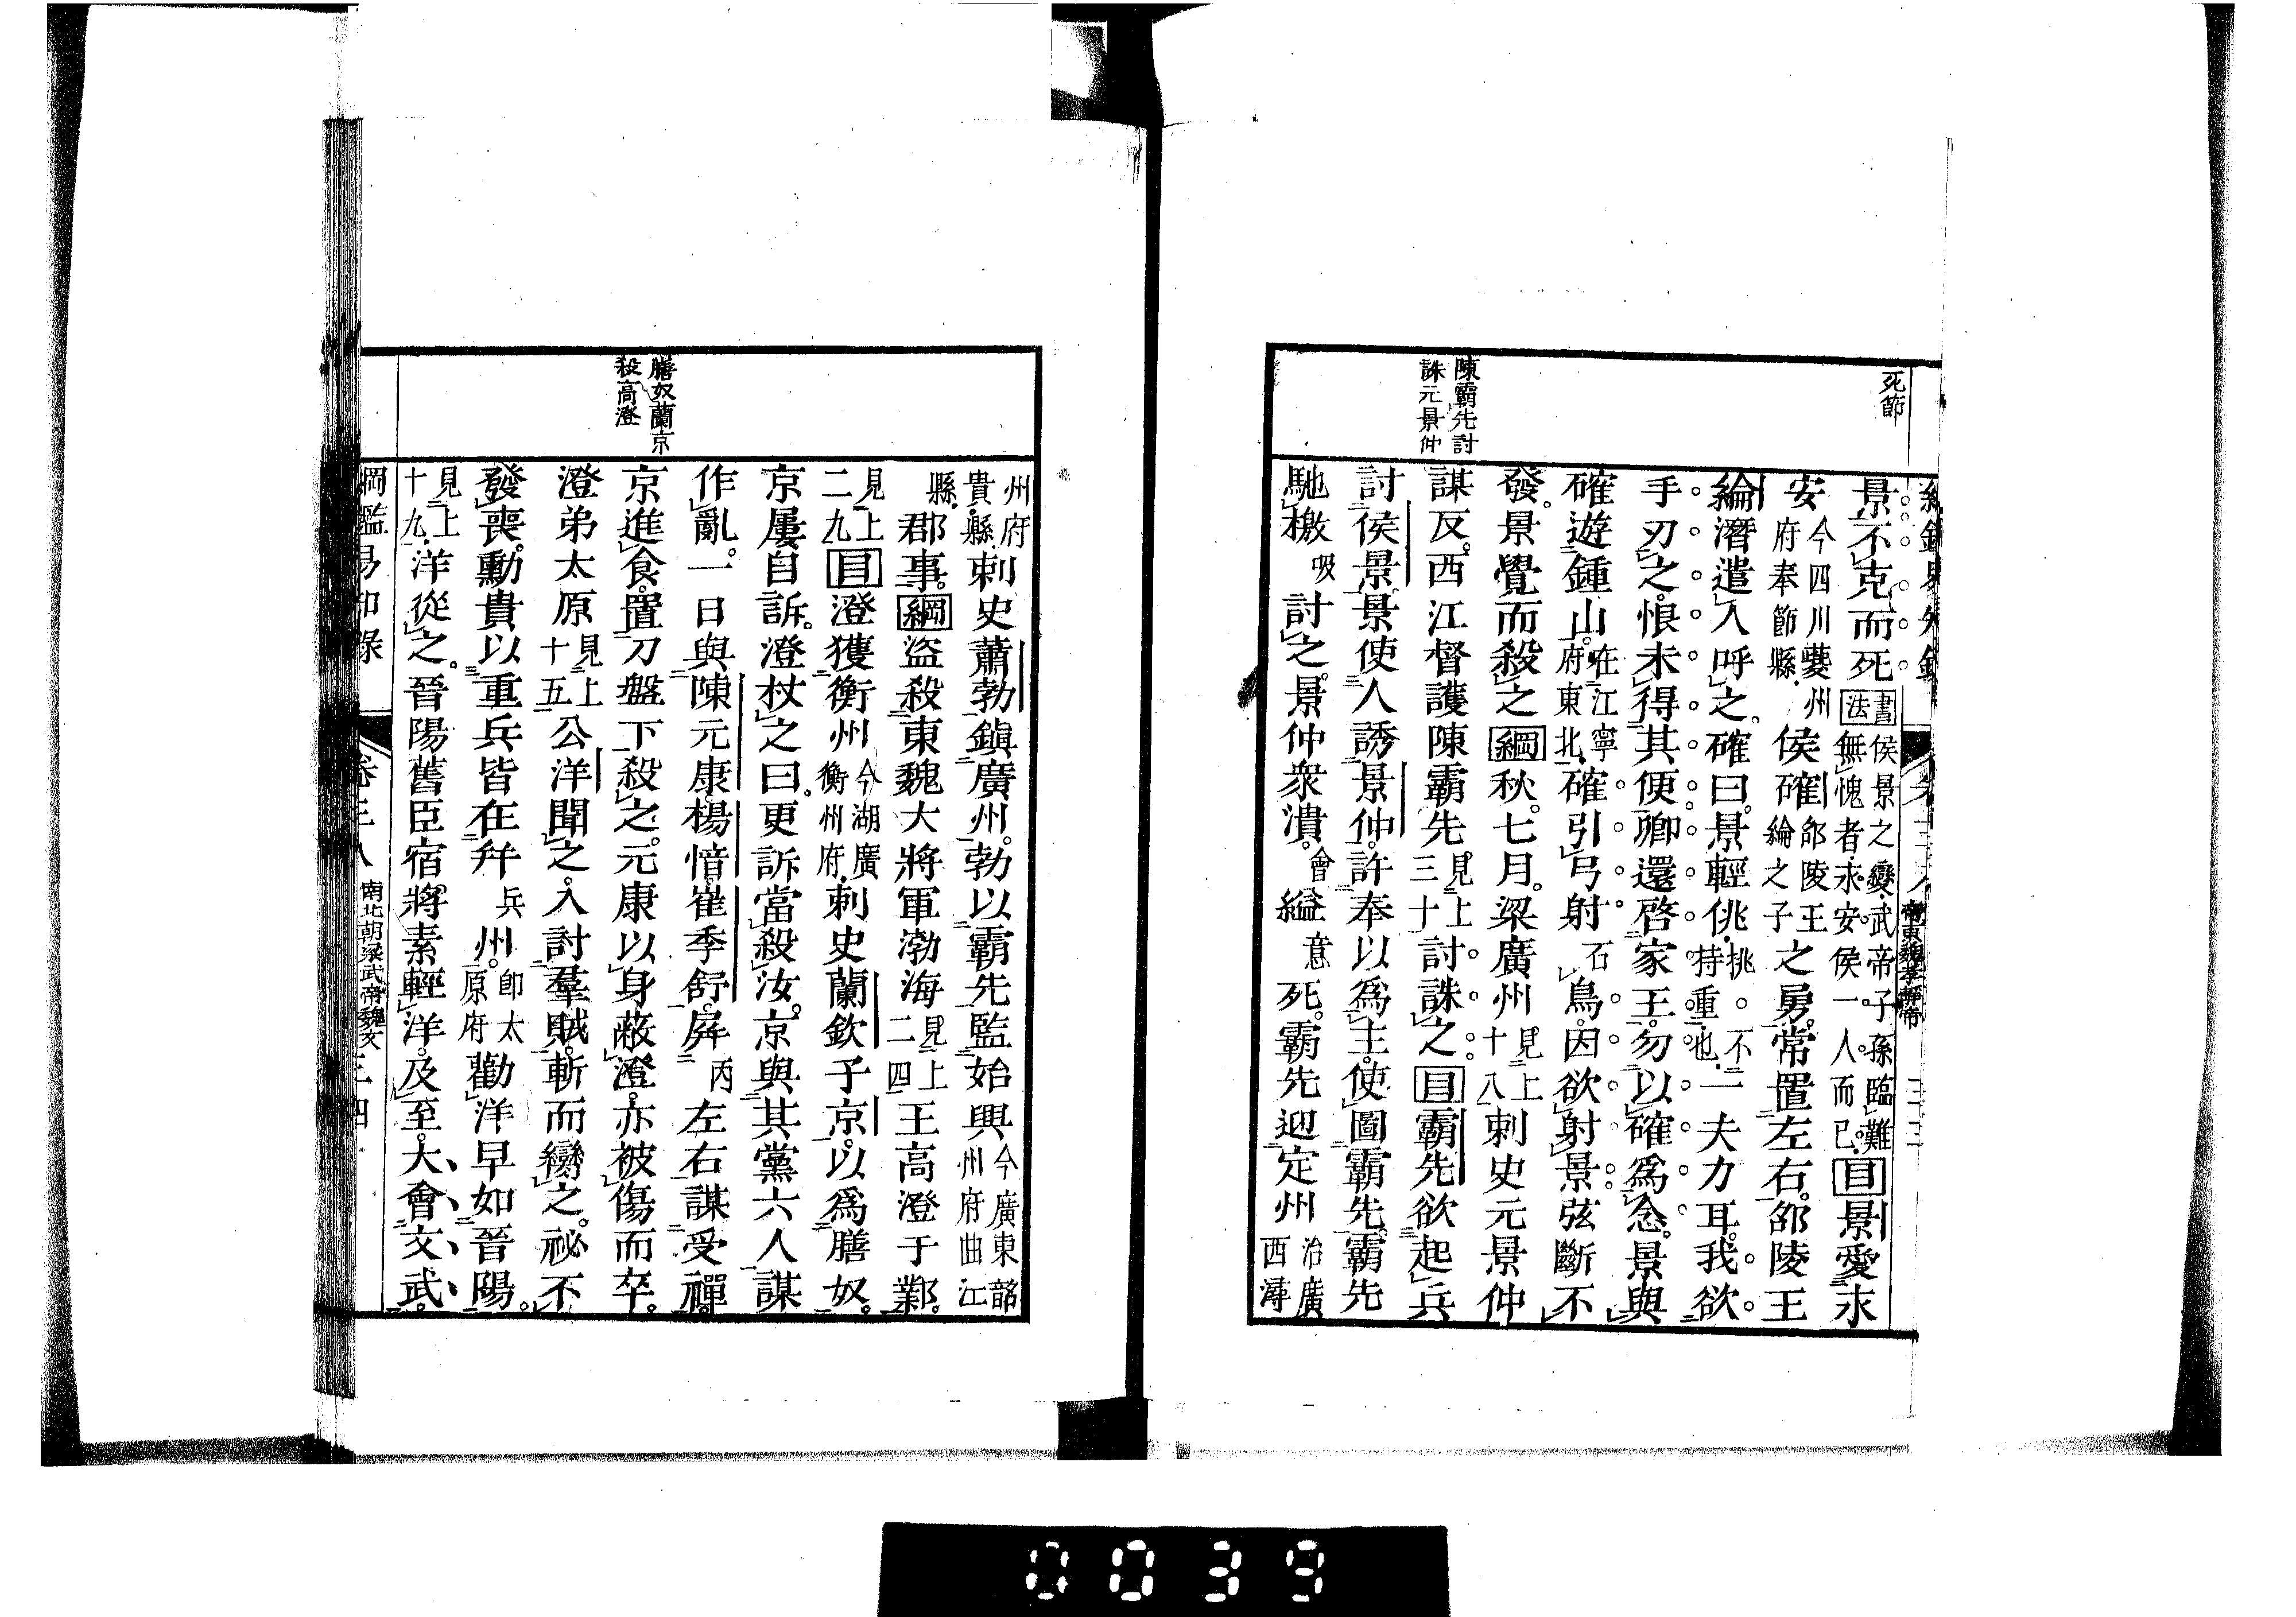 死節
陳霸先討
誅元景仲
景不克而死書法侯景之變武帝子孫臨難無愧者永安侯一人而已目景愛永
安今四川夔州府奉節縣侯確邵陵王綸之子之勇常置左右邵陵王
綸潛遣人呼之確曰景輕佻挑不持重也一夫力耳我欲
手刃之恨未得其便卿還啓家王勿以確爲念景與
確遊鍾山在江寧府東北確引弓射石鳥因欲射景弦斷不
發景覺而殺之綱秋七月梁廣州見上十八刺史元景仲
謀反西江督護陳霸先見上三十討誅之目霸先欲起兵
討侯景景使人誘景仲許奉以爲主使圖霸先霸先
馳檄吸討之景仲衆潰會縊意死霸先迎定州治廣西潯
州府貴縣刺史蕭勃鎮廣州勃以霸先監始興今廣東韶州府曲江
縣郡事綱盜殺東魏大將軍渤海見上二四王高澄于鄴
見上二九目澄獲衡州今湖廣衡州府刺史蘭欽子京以爲膳奴
京屢自訴澄杖之曰更訴當殺汝京與其黨六人謀
作亂一日與陳元康楊愔崔季舒屏丙左右謀受禪
京進食置刀盤下殺之元康以身蔽澄亦被傷而卒
澄弟太原見上十五公洋聞之入討羣賊斬而臠之祕不
發喪勳貴以重兵皆在幷兵州即太原府勸洋早如晉陽
見上十九洋從之晉陽舊臣宿將素輕洋及至大會文武
膳奴蘭京
殺高澄
綱鑑易知錄 卷三八 南北朝梁武帝 三四